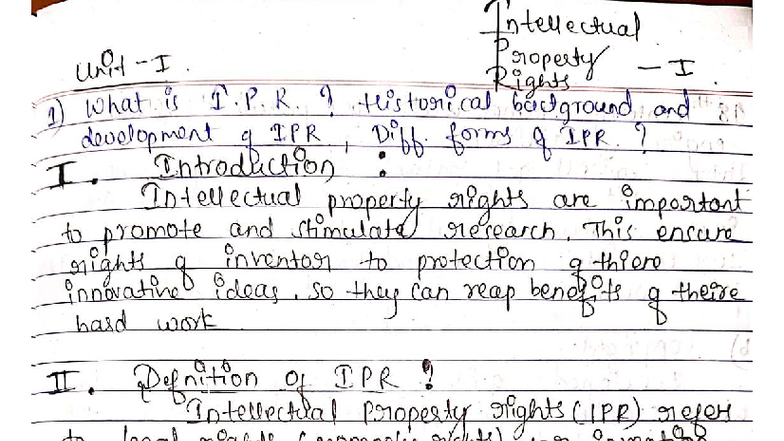 Intellectual
Property
Rights - I
Unit - I.
1) What is I.P.R. ? Historical background and
development of IPR, Diff. forms of IPR. ?
I. Introduction :
Intellectual property rights are important
to promote and stimulate research. This ensure
rights of inventor to protection of thiere
innovative ideas. so they can reap benefits of theire
hard work
II. Defnition of IPR ?
Intellectual Property rights (IPR) refer
to legal rights